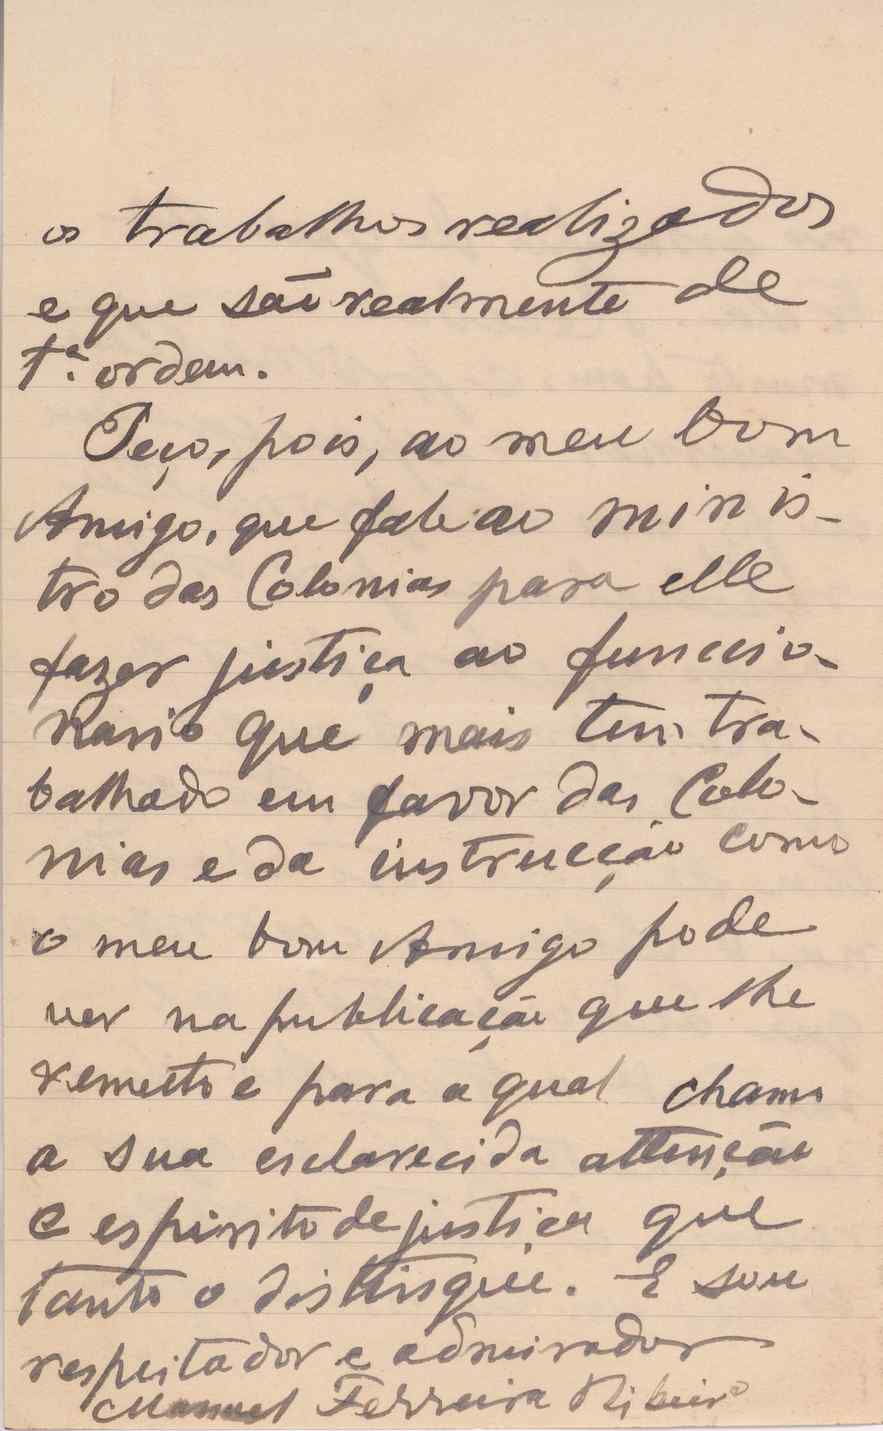 os trabalhos realizados
e que são realmente de
1ª ordem.
Peço, pois, ao meu bom
Amigo, que fale ao minis-
tro das Colonias para elle
fazer justiça ao funccio-
nario que mais tem tra-
balhado em favor das Colo-
nias e da instrucção como
o meu bom Amigo pode
ver na publicação que lhe
remetto e para a qual chamo
a sua esclarecida attenção
e espirito de justiça que
tanto o distingue. E sou
respeitador e admirador
Manuel Ferreira Ribeiro